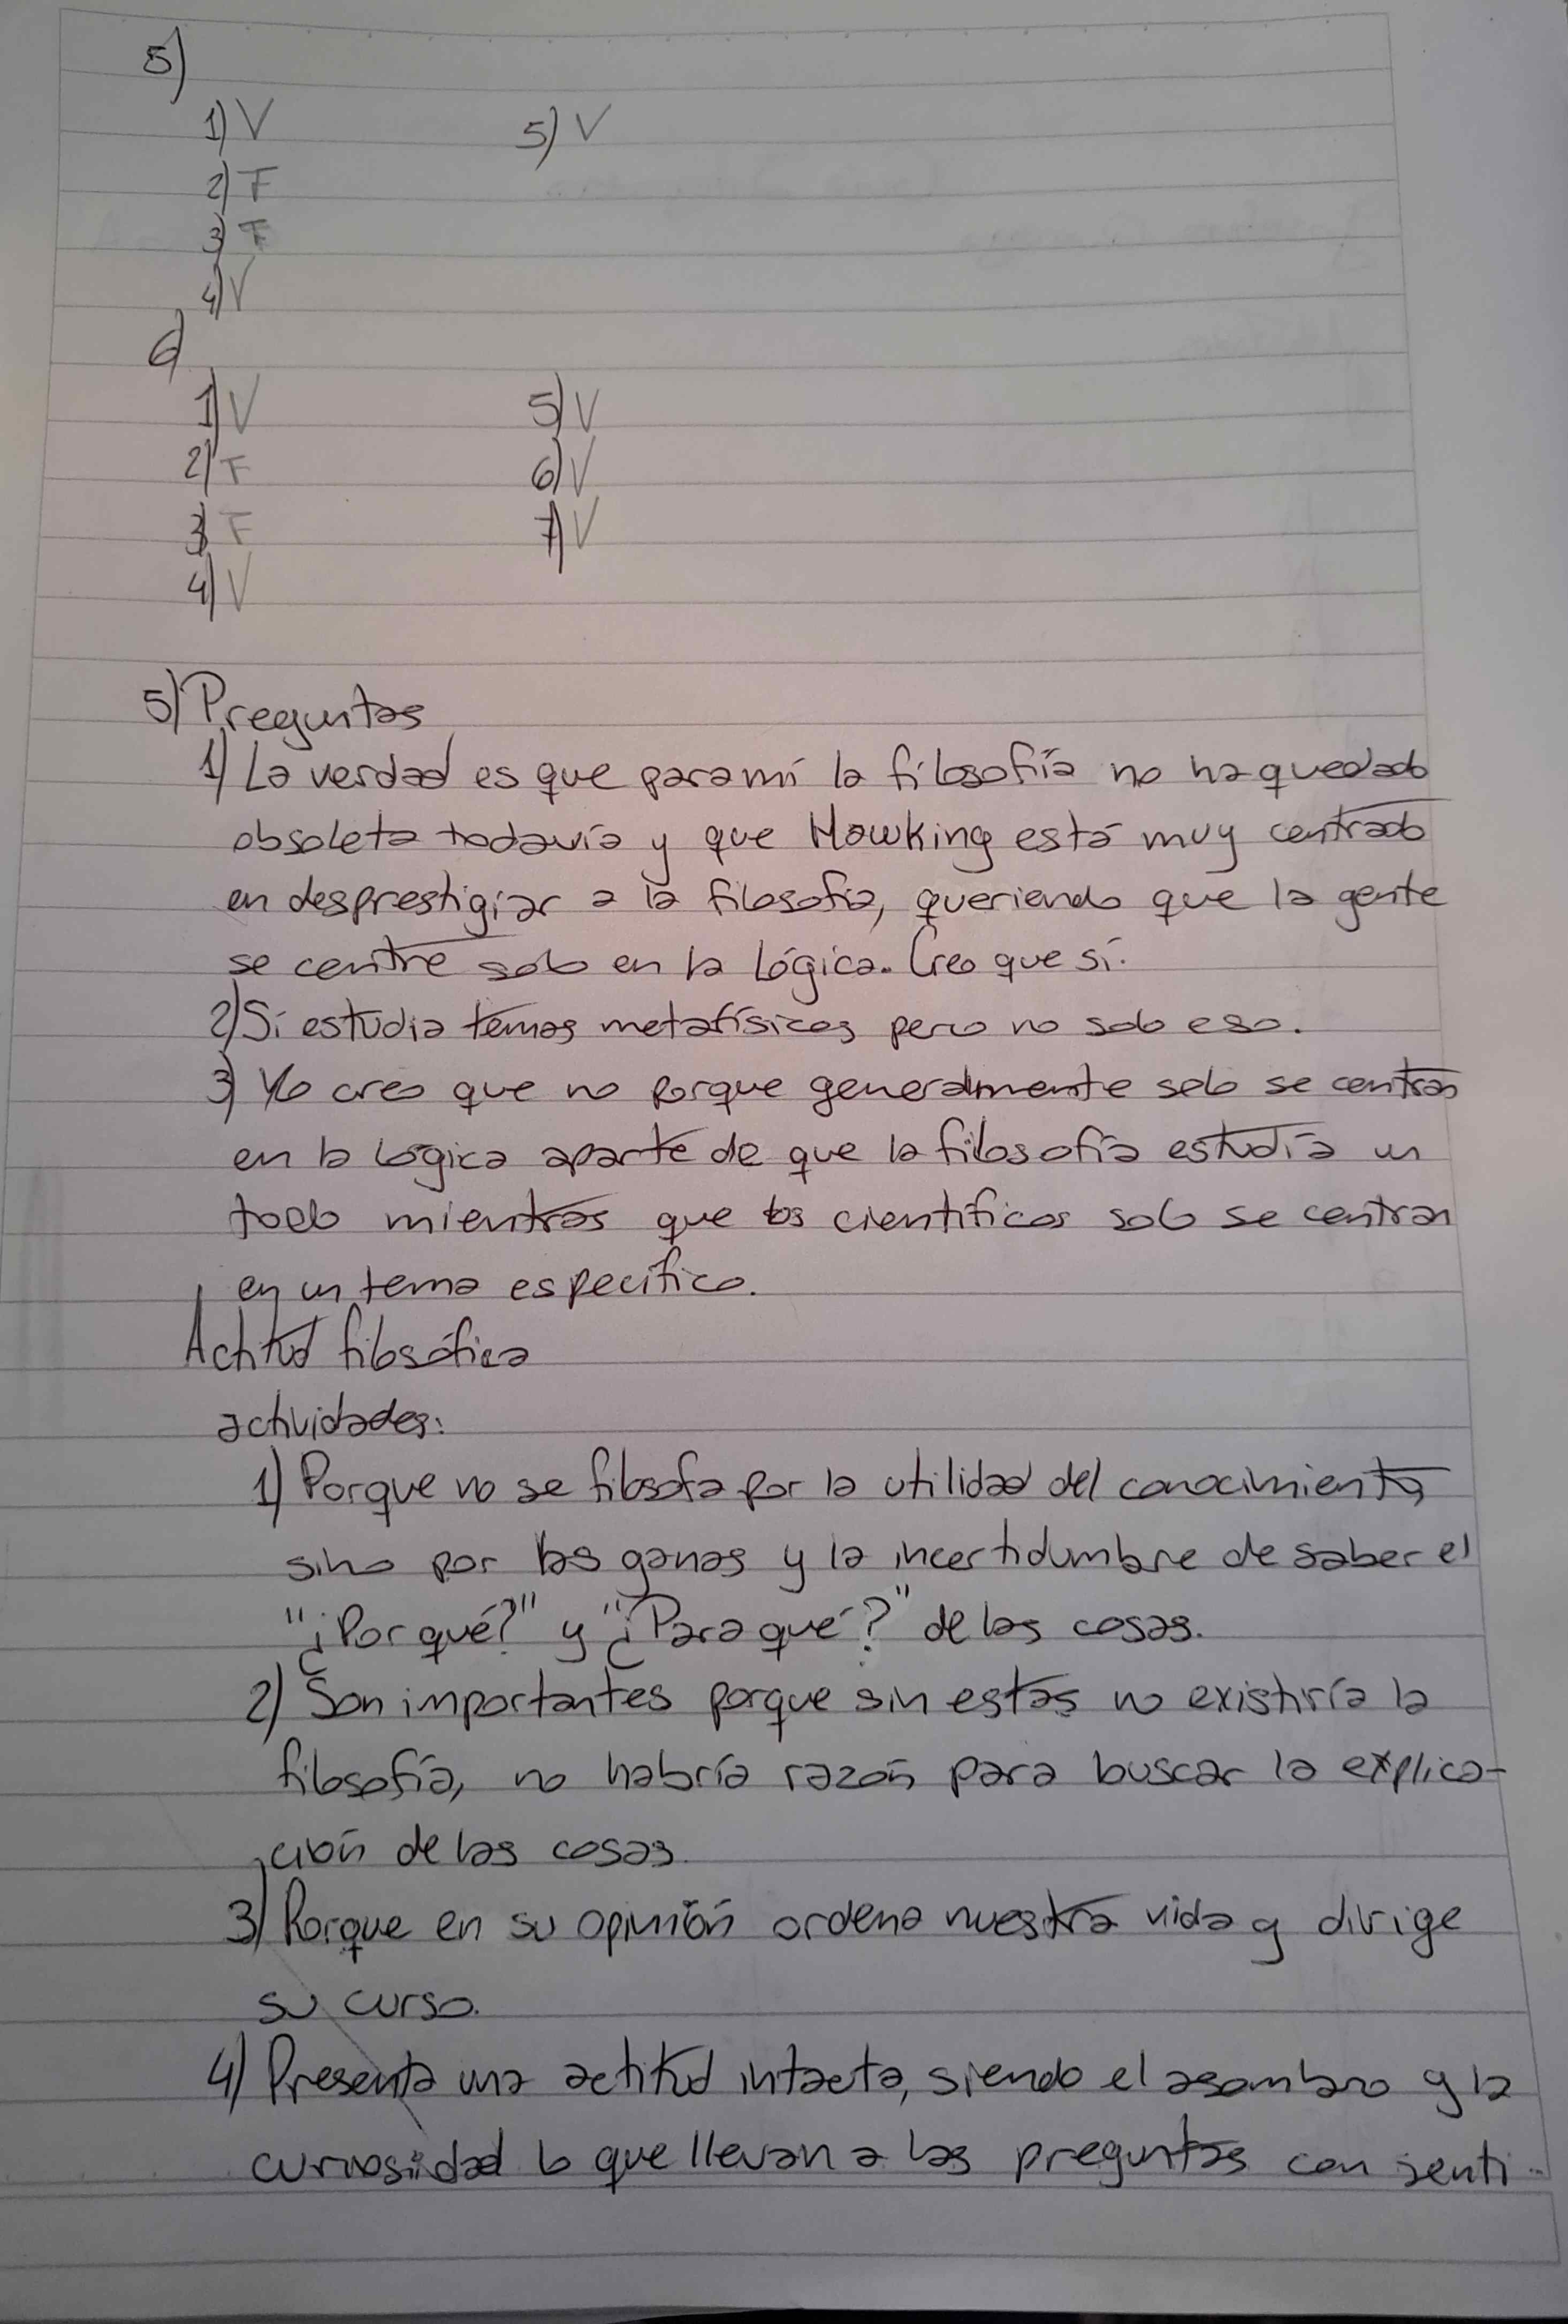 5)
1) V
5) V
2) F
3) F
4) V
6)
1) V
5) V
2) F
6) V
3) F
7) V
4) V
5) Preguntas
1) La verdad es que para mí la filosofía no ha quedado
obsoleta todavía y que Hawking está muy centrado
en desprestigiar a la filosofía, queriendo que la gente
se centre solo en la lógica. Creo que sí.
2) Sí estudia temas metafísicos pero no solo eso.
3) Yo creo que no porque generalmente solo se centran
en la lógica aparte de que la filosofía estudia un
todo mientras que los científicos solo se centran
en un tema específico.
Actitud filosófica
actividades:
1) Porque no se filosofa por la utilidad del conocimiento,
sino por las ganas y la incertidumbre de saber el
"¿Por qué?" y "¿Para qué?" de las cosas.
2) Son importantes porque sin estas no existiría la
filosofía, no habría razón para buscar la explica-
ción de las cosas.
3) Porque en su opinión ordena nuestra vida y dirige
su curso.
4) Presenta una actitud intacta, siendo el asombro y la
curiosidad lo que llevan a las preguntas con senti-